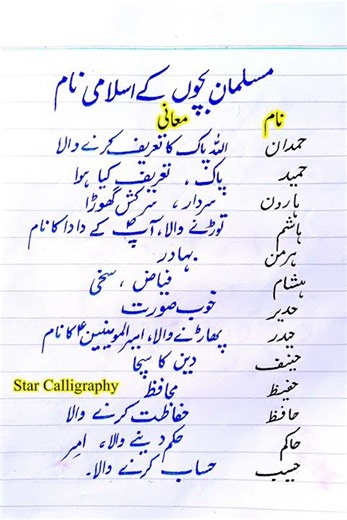 مسلمان بچوں کے اسلامی نام
نام معانی
حمدان اللہ پاک کا تعریف کرنے والا
حمید پاک ، تعریف کیا ہوا
ہارون سردار ، سرکش گھوڑا
ہاشم توڑنے والا، آپؐ کے دادا کا نام
ہرمن بہادر
ہشام فیاض ، سخی
حدیر خوب صورت
حیدر پھاڑنے والا، امیر المومینین کا نام
حنیف دین کا سچا
حفیظ محافظ Star Calligraphy
حافظ حفاظت کرنے والا
حاکم حکم دینے والا، امیر
حسیب حساب کرنے والا۔